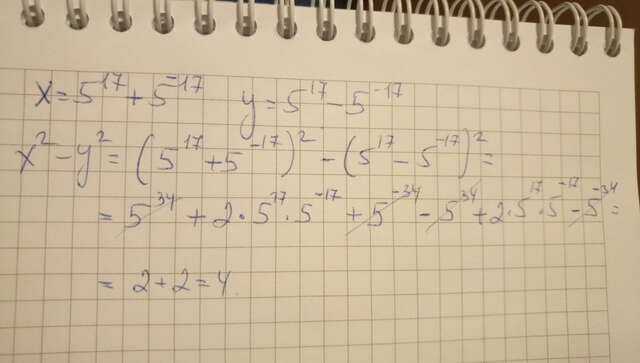 x = 5^17 + 5^-17 y = 5^17 - 5^-17
x^2 - y^2 = (5^17 + 5^-17)^2 - (5^17 - 5^-17)^2 =
= 5^34 + 2·5^17·5^-17 + 5^-34 - 5^34 + 2·5^17·5^-17 - 5^-34 =
= 2 + 2 = 4.